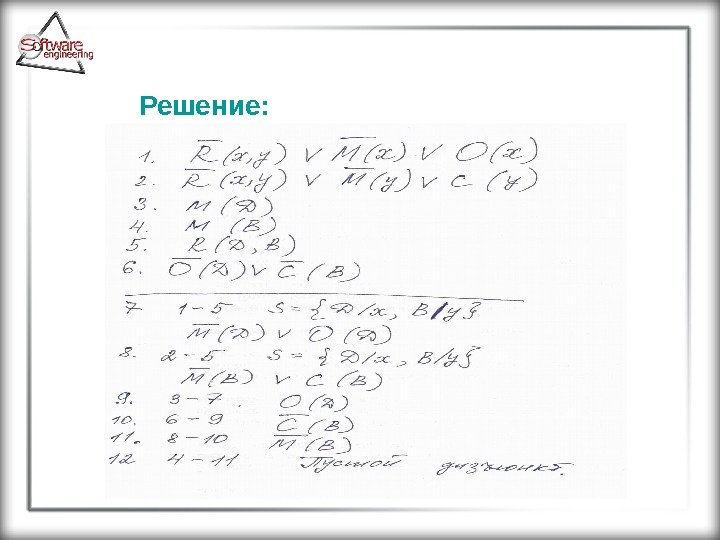 Software
engineering
Решение:
1. R̅(x,y) ∨ M̅(x) ∨ O(x)
2. R̅(x,y) ∨ M̅(y) ∨ C(y)
3. M(D)
4. M (B)
5. R(D,B)
6. O̅(D) ∨ C̅(B)
7 1-5 S={D/x, B/y}
M̅(D) ∨ O(D)
8. 2-5 S={D/x, B/y}
M̅(B) ∨ C(B)
9. 3-7. O(D)
10. 6-9 C̅(B)
11. 8-10 M̅(B)
12 4-11 Пустой дизъюнкт.